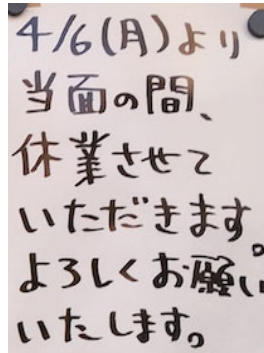 4/6(月)より
当面の間、
休業させて
いただきます。
よろしくお願い
いたします。